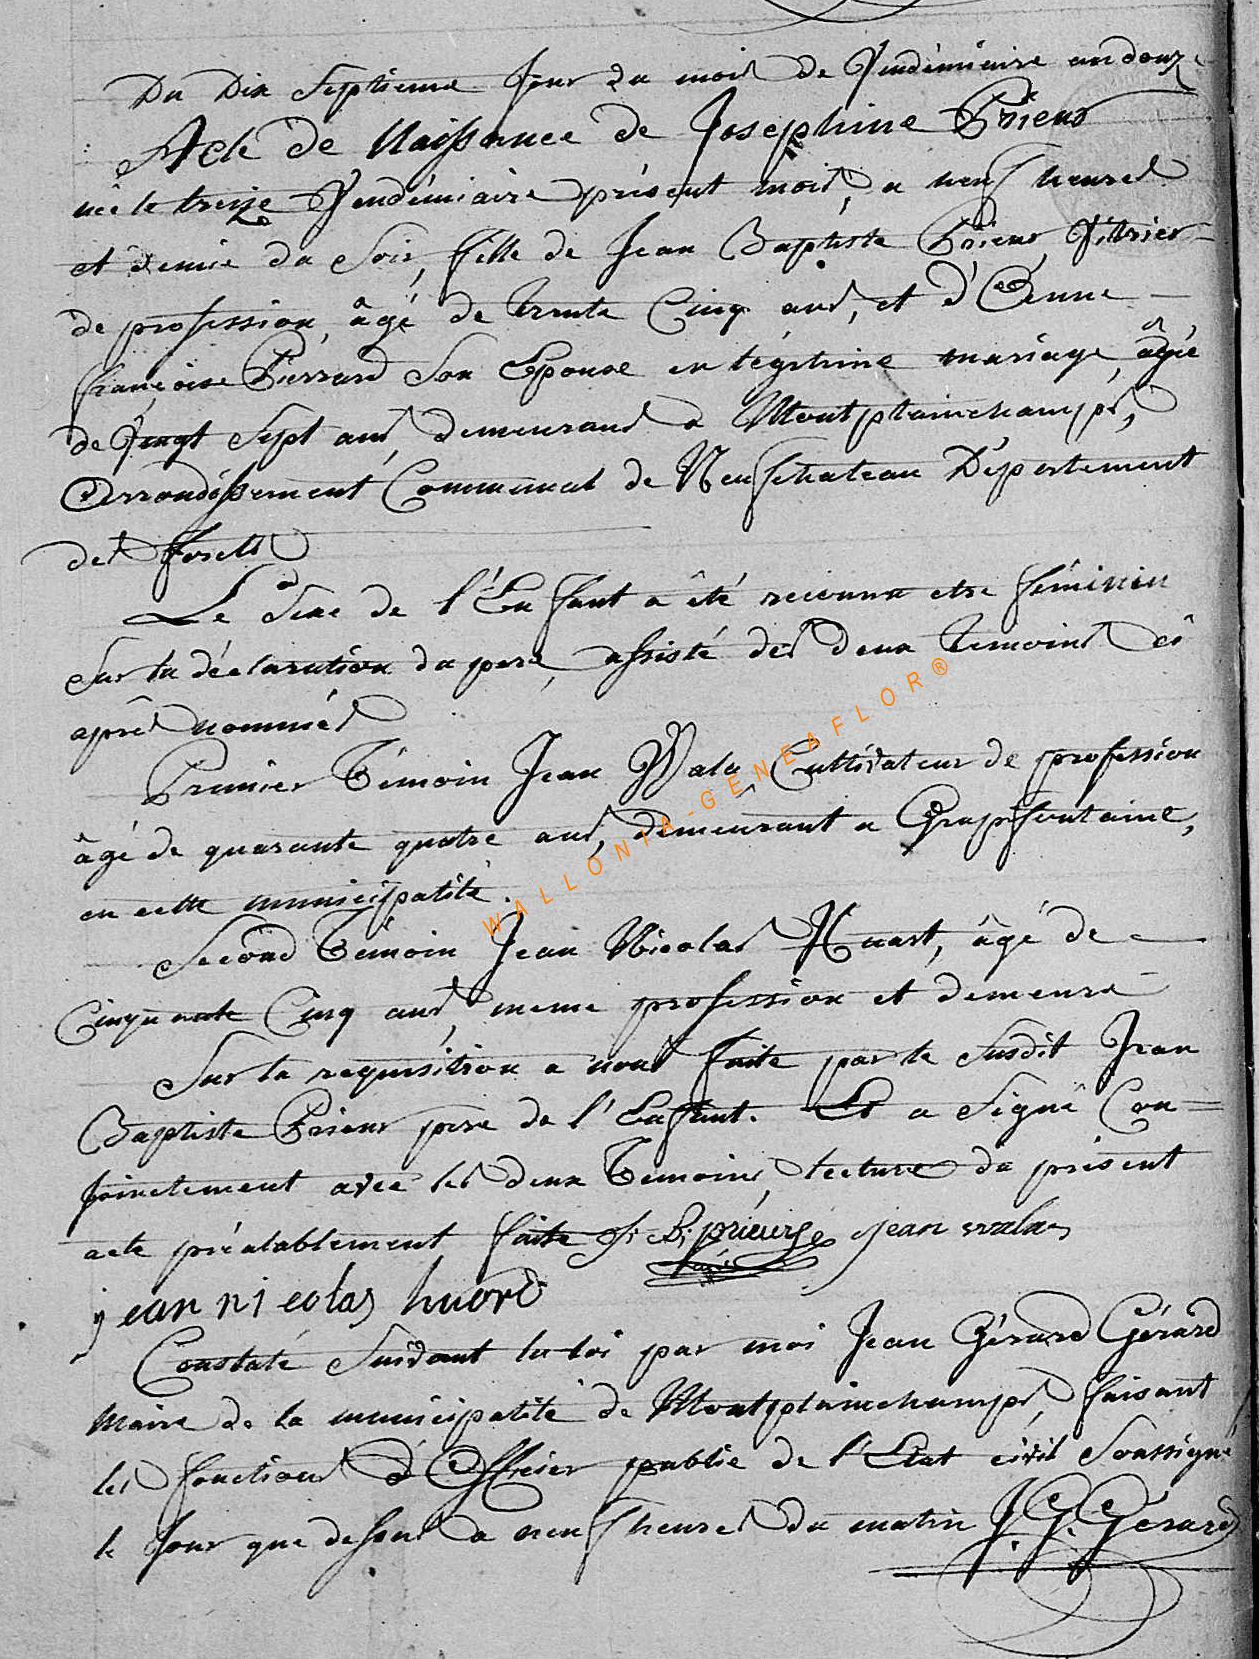 Du Dix Septieme Jour du mois de Vendémiaire an douze
Acte de Naissance de Josephine Prieur
née le treize Vendémiaire présent mois, a neuf heures
et demie du Soir, fille de Jean Baptiste Prieur, Vitrier
de profession, âgé de Trente Cinq ans, et d'
françoise Pierrard Son Epouse en légitime mariage, âgée
de Vingt Sept ans, demeurans a Montplainchamps,
Arrondissement Communal de Neufchateau Département
des forets
Le Sexe de l'Enfant a êté reconnu etre féminin
Sur la déclaration du pere, assisté des deux Temoins ci
après nommés
Premier Témoin Jean Wala, Cultivateur de profession
âgé de quarante quatre ans, demeurant a Grapfontaine,
en cette municipalité.
Second Témoin Jean Nicolas Huart, âgé de
Cinquante Cinq ans, meme profession et demeure
Sur la requisition a nous faite par le Susdit Jean
Baptiste Prieur pere de l'Enfant. Et a Signé Con=
jointement avec les deux Temoins, lecture du présent
acte préalablement faite J: B; prieur jean walas
jean nicolas huord
Constaté Suivant la loi par moi Jean Gérard Gérard
Maire de la municipalité de Montplainchamps, faisant
les fonctions d'Officier public de l'Etat civil Soussigné
le Jour que dessus a neuf heures du matin J. G. Gérard
WALLONIA-GENEAFLOR®